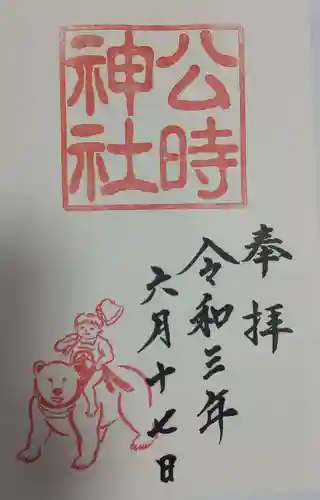 公時
神社
奉拝
令和三年
六月十七日